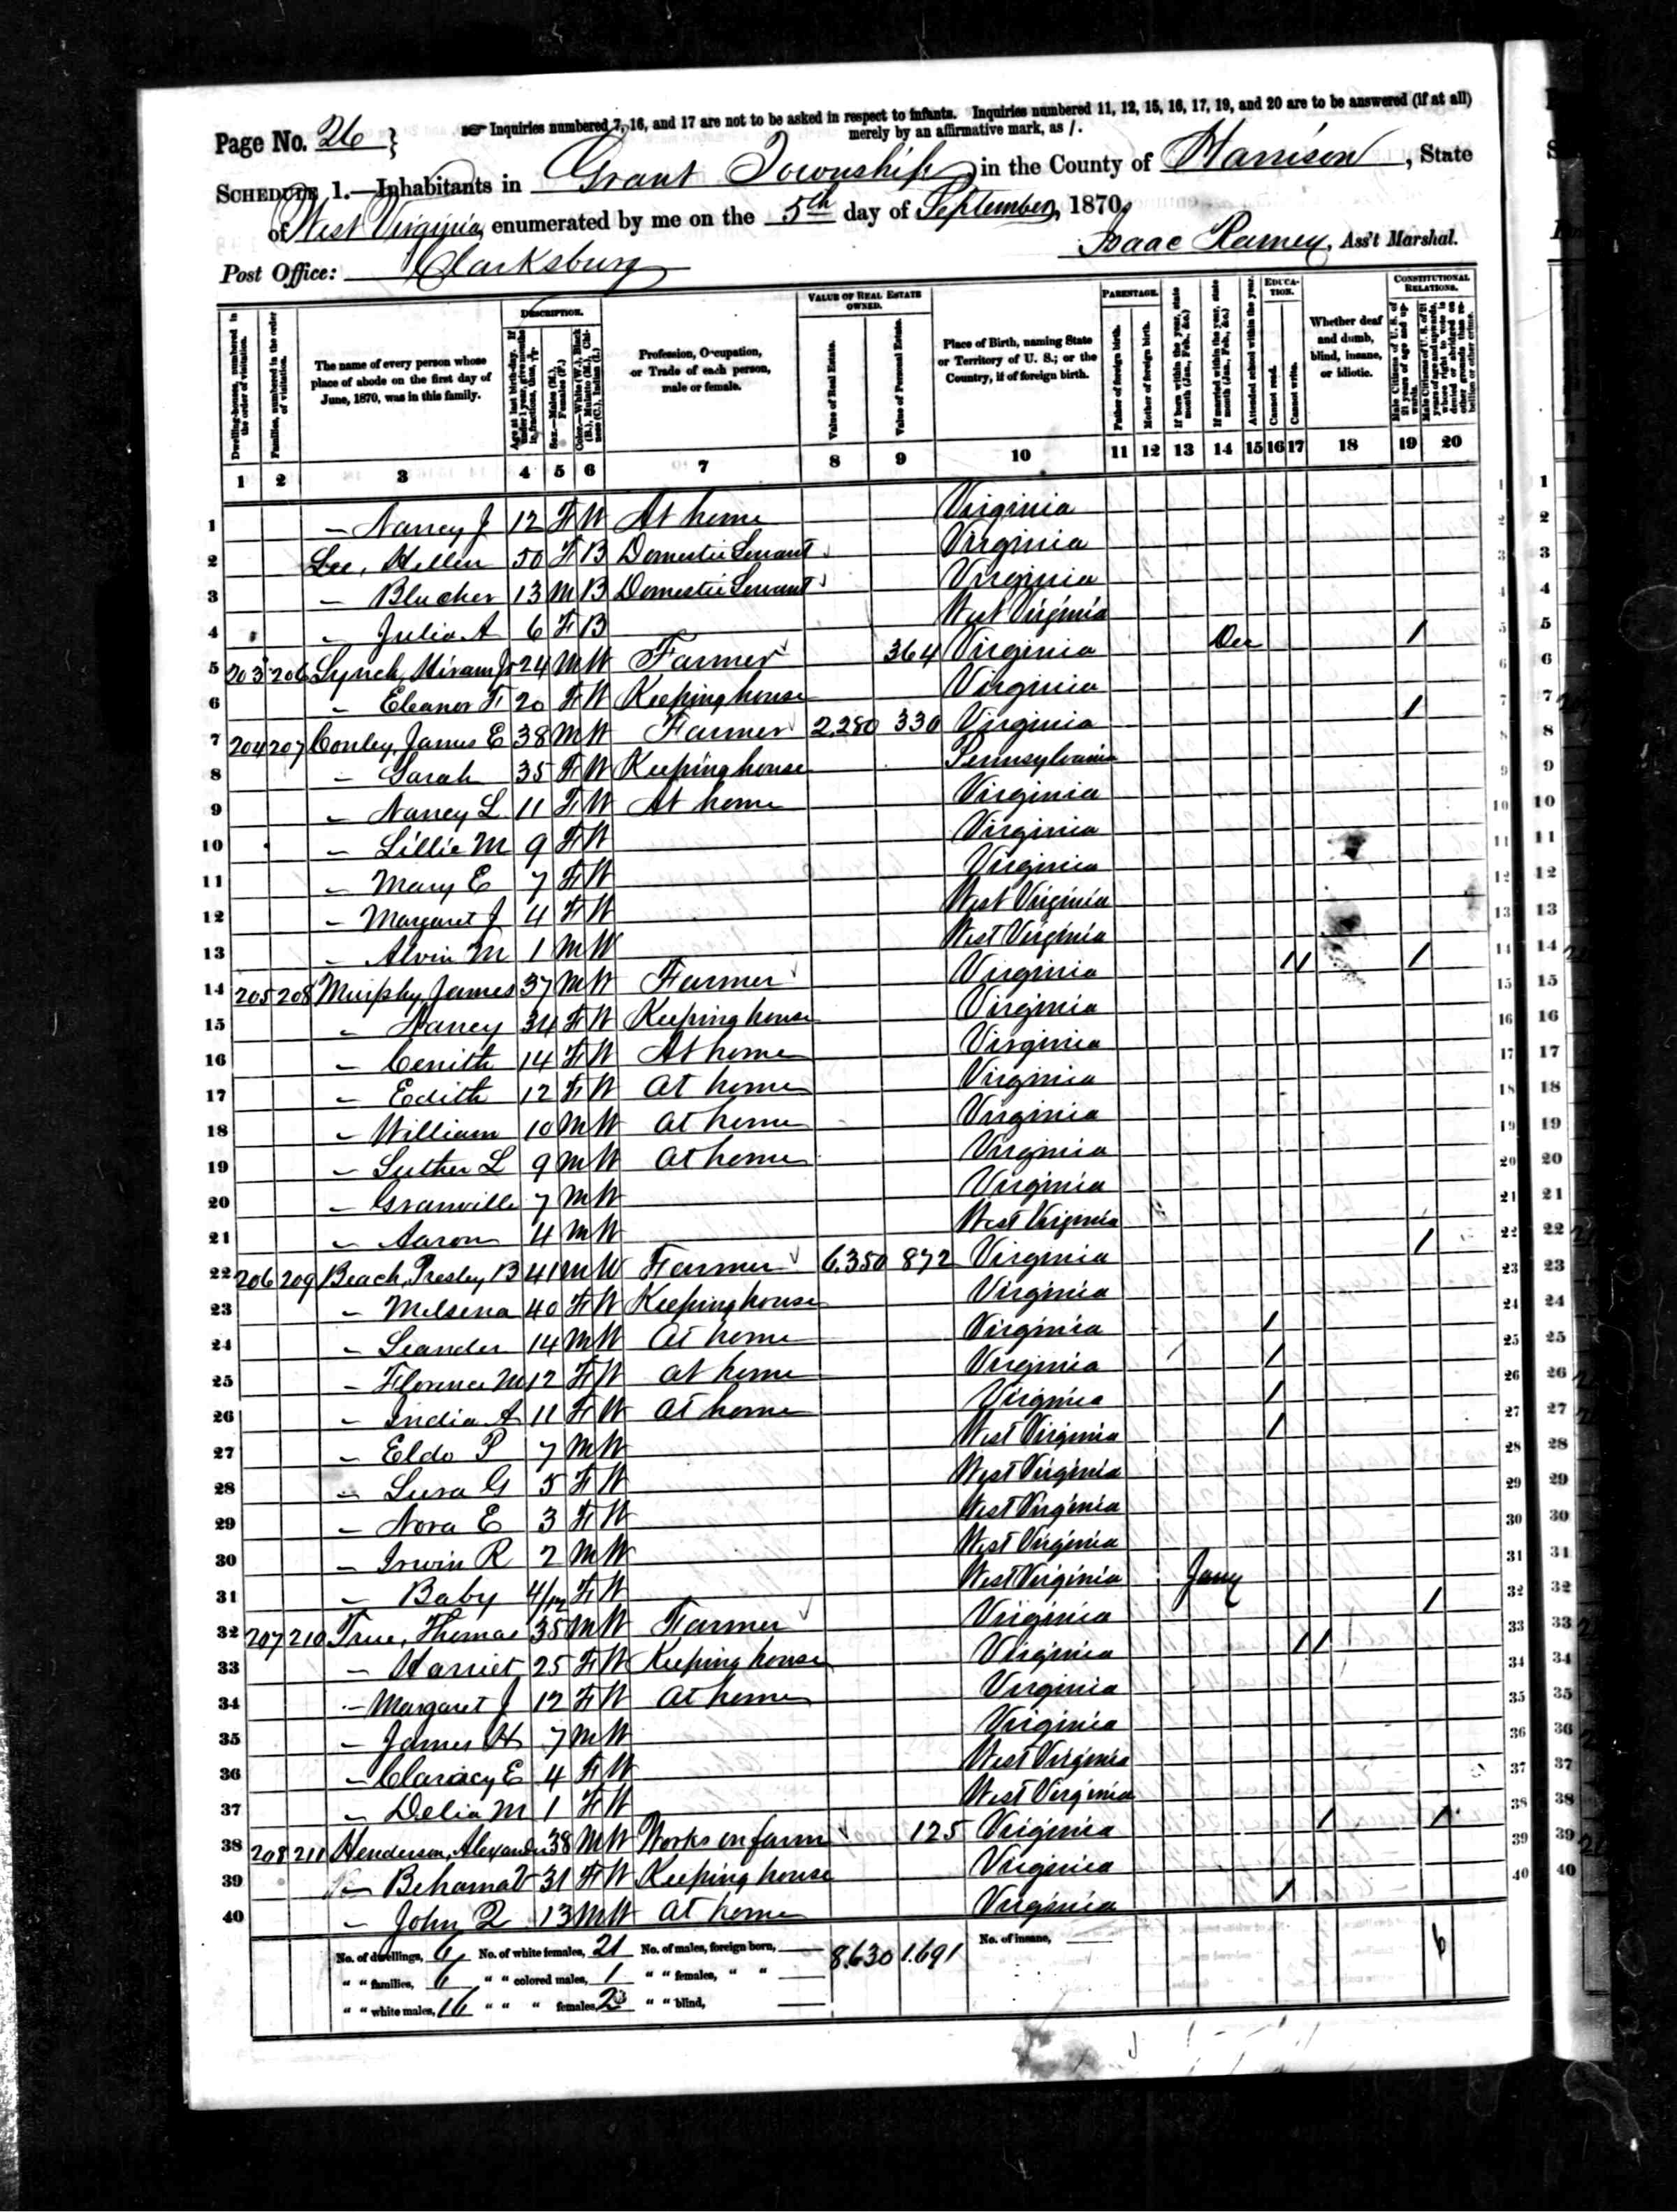 Page No. 26
Inquiries numbered 7, 16, and 17 are not to be asked in respect to infants. Inquiries numbered 11, 12, 15, 16, 17, 19, and 20 are to be answered (if at all)
merely by an affirmative mark, as /.
SCHEDULE 1.—Inhabitants in Grant Township, in the County of Harrison, State
of West Virginia, enumerated by me on the 5th day of September, 1870.
Post Office: Clarksburg
Isaac Ramey, Ass't Marshal.
DESCRIPTION. VALUE OF REAL ESTATE OWNED. PARENTAGE. EDUCATION. CONSTITUTIONAL RELATIONS.
Dwelling-houses, numbered in the order of visitation.
Families, numbered in the order of visitation.
The name of every person whose place of abode on the first day of June, 1870, was in this family.
Age at last birth-day. If under 1 year, give months in fractions, thus,
Sex.—Males (M.), Females (F.)
Color.—White (W.), Black (B.), Mulatto (M.), Chinese (C.), Indian (I.)
Profession, Occupation, or Trade of each person, male or female.
Value of Real Estate.
Value of Personal Estate.
Place of Birth, naming State or Territory of U. S.; or the Country, if of foreign birth.
Father of foreign birth.
Mother of foreign birth.
If born within the year, state month (Jan., Feb., &c.)
If married within the year, state month (Jan., Feb., &c.)
Attended school within the year.
Cannot read.
Cannot write.
Whether deaf and dumb, blind, insane, or idiotic.
Male Citizens of U. S. of 21 years of age and upwards.
Male Citizens of U. S. of 21 years of age and upwards, whose right to vote is denied or abridged on other grounds than rebellion or other crime.
1 2 3 4 5 6 7 8 9 10 11 12 13 14 15 16 17 18 19 20
1 — Nancy J 12 F W At home Virginia
2 Lee, Hellen 50 F B Domestic Servant Virginia
3 — Blucher 13 M B Domestic Servant Virginia
4 — Julia A 6 F B West Virginia
5 203 206 Lynch, Hiram Jr 24 M W Farmer 364 Virginia Dec /
6 — Eleanor F 20 F W Keeping house Virginia
7 204 207 Conley, James E 38 M W Farmer 2,280 330 Virginia /
8 — Sarah 35 F W Keeping house Pennsylvania
9 — Nancy L 11 F W At home Virginia
10 — Lillie M 9 F W Virginia
11 — Mary E 7 F W Virginia
12 — Margaret J 4 F W West Virginia
13 — Alvin M 1 M W West Virginia
14 205 208 Murphy, James 37 M W Farmer Virginia / / /
15 — Nancy 34 F W Keeping house Virginia
16 — Cenith 14 F W At home Virginia
17 — Edith 12 F W At home Virginia
18 — William 10 M W At home Virginia
19 — Luther L 9 M W At home Virginia
20 — Granville 7 M W Virginia
21 — Aaron 4 M W West Virginia
22 206 209 Beach, Presley B 41 M W Farmer 6,350 872 Virginia /
23 — Melsena 40 F W Keeping house Virginia
24 — Leander 14 M W At home Virginia /
25 — Florence M 12 F W at home Virginia /
26 — India A 11 F W At home Virginia /
27 — Eldo P 7 M W West Virginia /
28 — Lura G 5 F W West Virginia
29 — Nora E 3 F W West Virginia
30 — Irwin R 2 M W West Virginia
31 — Baby 4/12 F W West Virginia Jany
32 207 210 True, Thomas 35 M W Farmer Virginia /
33 — Harriet 25 F W Keeping house Virginia / /
34 — Margaret J 12 F W At home Virginia
35 — James H 7 M W Virginia
36 — Claracy E 4 F W West Virginia
37 — Delia M 1 F W West Virginia
38 208 211 Henderson, Alexander 38 M W Works on farm 125 Virginia / /
39 — 31 F W Keeping house Virginia
40 — John Q 13 M W At home Virginia /
No. of dwellings, 6 No. of white females, 21 No. of males, foreign born, — 8,630 1,691 No. of insane, — 6
" " families, 6 " " colored males, 1 " " females, " " —
" " white males, 16 " " " females, 2 " " blind, —